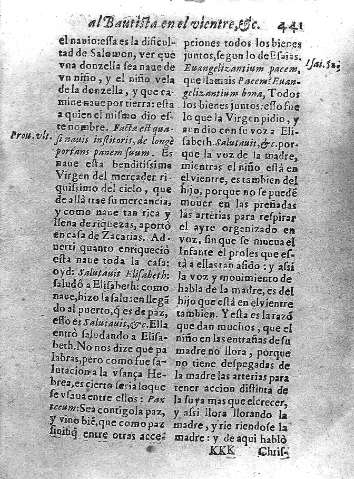 al Bautista en el vientre, &c. 441
el nauio: essa es la dificul-
tad de Salomon, ver que
vna donzella sea naue de
vn niño, y el niño vela
de la donzella, y que ca
mine naue por tierra: esta
a quien el mismo dio es-
te nombre. Facta est qua-
si nauis institoris, de longè
portans panem suum. Es
naue esta benditissima
Virgen del mercader ri-
quissimo del cielo, que
de allà trae su mercancia,
y como naue tan rica y
llena de riquezas, aportò
en casa de Zacarias. Ad-
uerti quanto enriqueciò
esta naue toda la casa:
oyd: Salutauit Elisabeth:
saludò a Elisabeth: como
naue, hizo la salua en llegã
do al puerto, q̃ es de paz,
esso es Salutauit, &c. Ella
entrò saludando a Elisa-
beth. No nos dize que pa
labras, pero como fue sa-
lutacion a la vsança He-
brea, es cierto seria lo que
se vsaua entre ellos: Pax
tecum: Sea contigo la paz,
y vino biẽ, que como paz
finitiq̃ entre otras acce-
Prou. vlt.
pciones todos los bienes
juntos, segun lo de Esaias.
Euangelizantium pacem,
que llamais Pacem: Euan-
gelizantium bona, Todos
los bienes juntos: esso fue
lo que la Virgen pidio, y
aun dio con su voz a Eli-
sabeth. Salutauit, &c. por-
que la voz de la madre,
mientras el niño està en
el vientre, es tambien del
hijo, porque no se puedẽ
mouer en las preñadas
las arterias para respirar
el ayre organizado en
voz, sin que se mueua el
Infante el proles que es-
tà a ellas tan asido: y assi
la voz y mouimiento de
habla de la madre, es del
hijo que està en el vientre
tambien. Y esta es la razõ
que dan muchos, que el
niño en las entrañas de su
madre no llora, porque
no tiene despegadas de
la madre las arterias para
tener accion distinta de
la suya mas que el crecer,
y assi llora llorando la
madre, y rie riendose la
madre: y de aqui hablò
Isai. 52
KKK Chris-